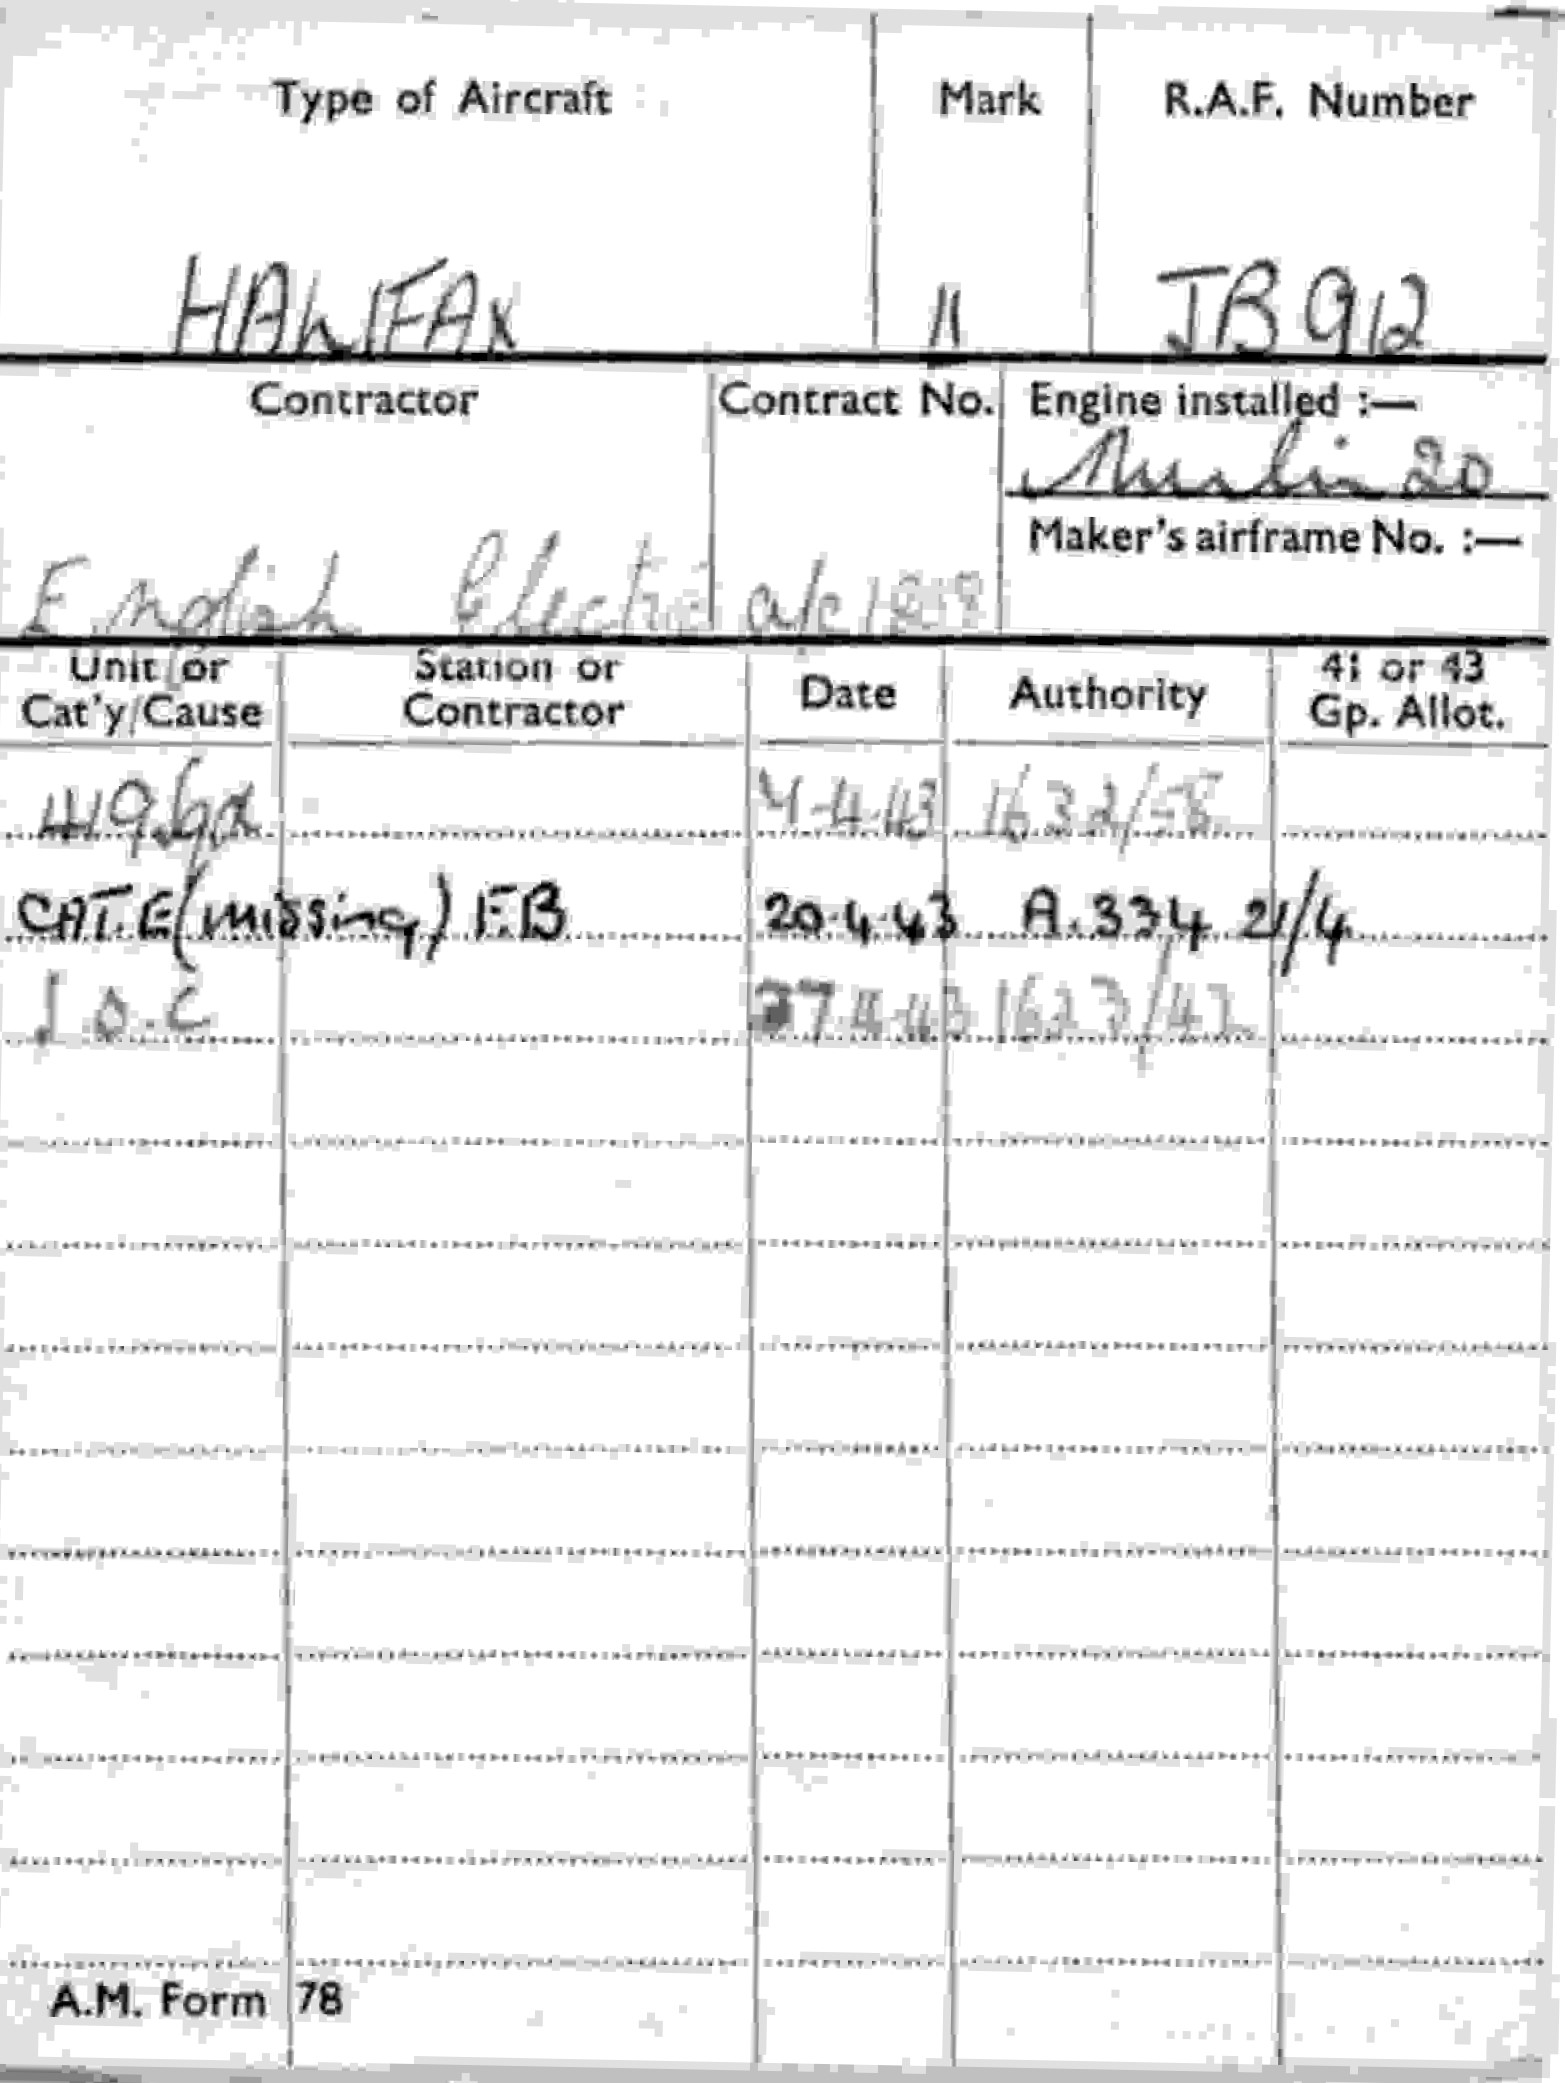 Type of Aircraft Mark R.A.F. Number
HALIFAX 11 JB912
Contractor Contract No. Engine installed :—
Merlin 20
Maker's airframe No. :—
English Electric a/c 1808
Unit or Cat'y/Cause Station or Contractor Date Authority 41 or 43 Gp. Allot.
419 Sq 4.4.43 1632/58
CAT.E (missing) F.B 20.4.43 A.334 21/4
S.O.C 27.4.43 1627/42
A.M. Form 78